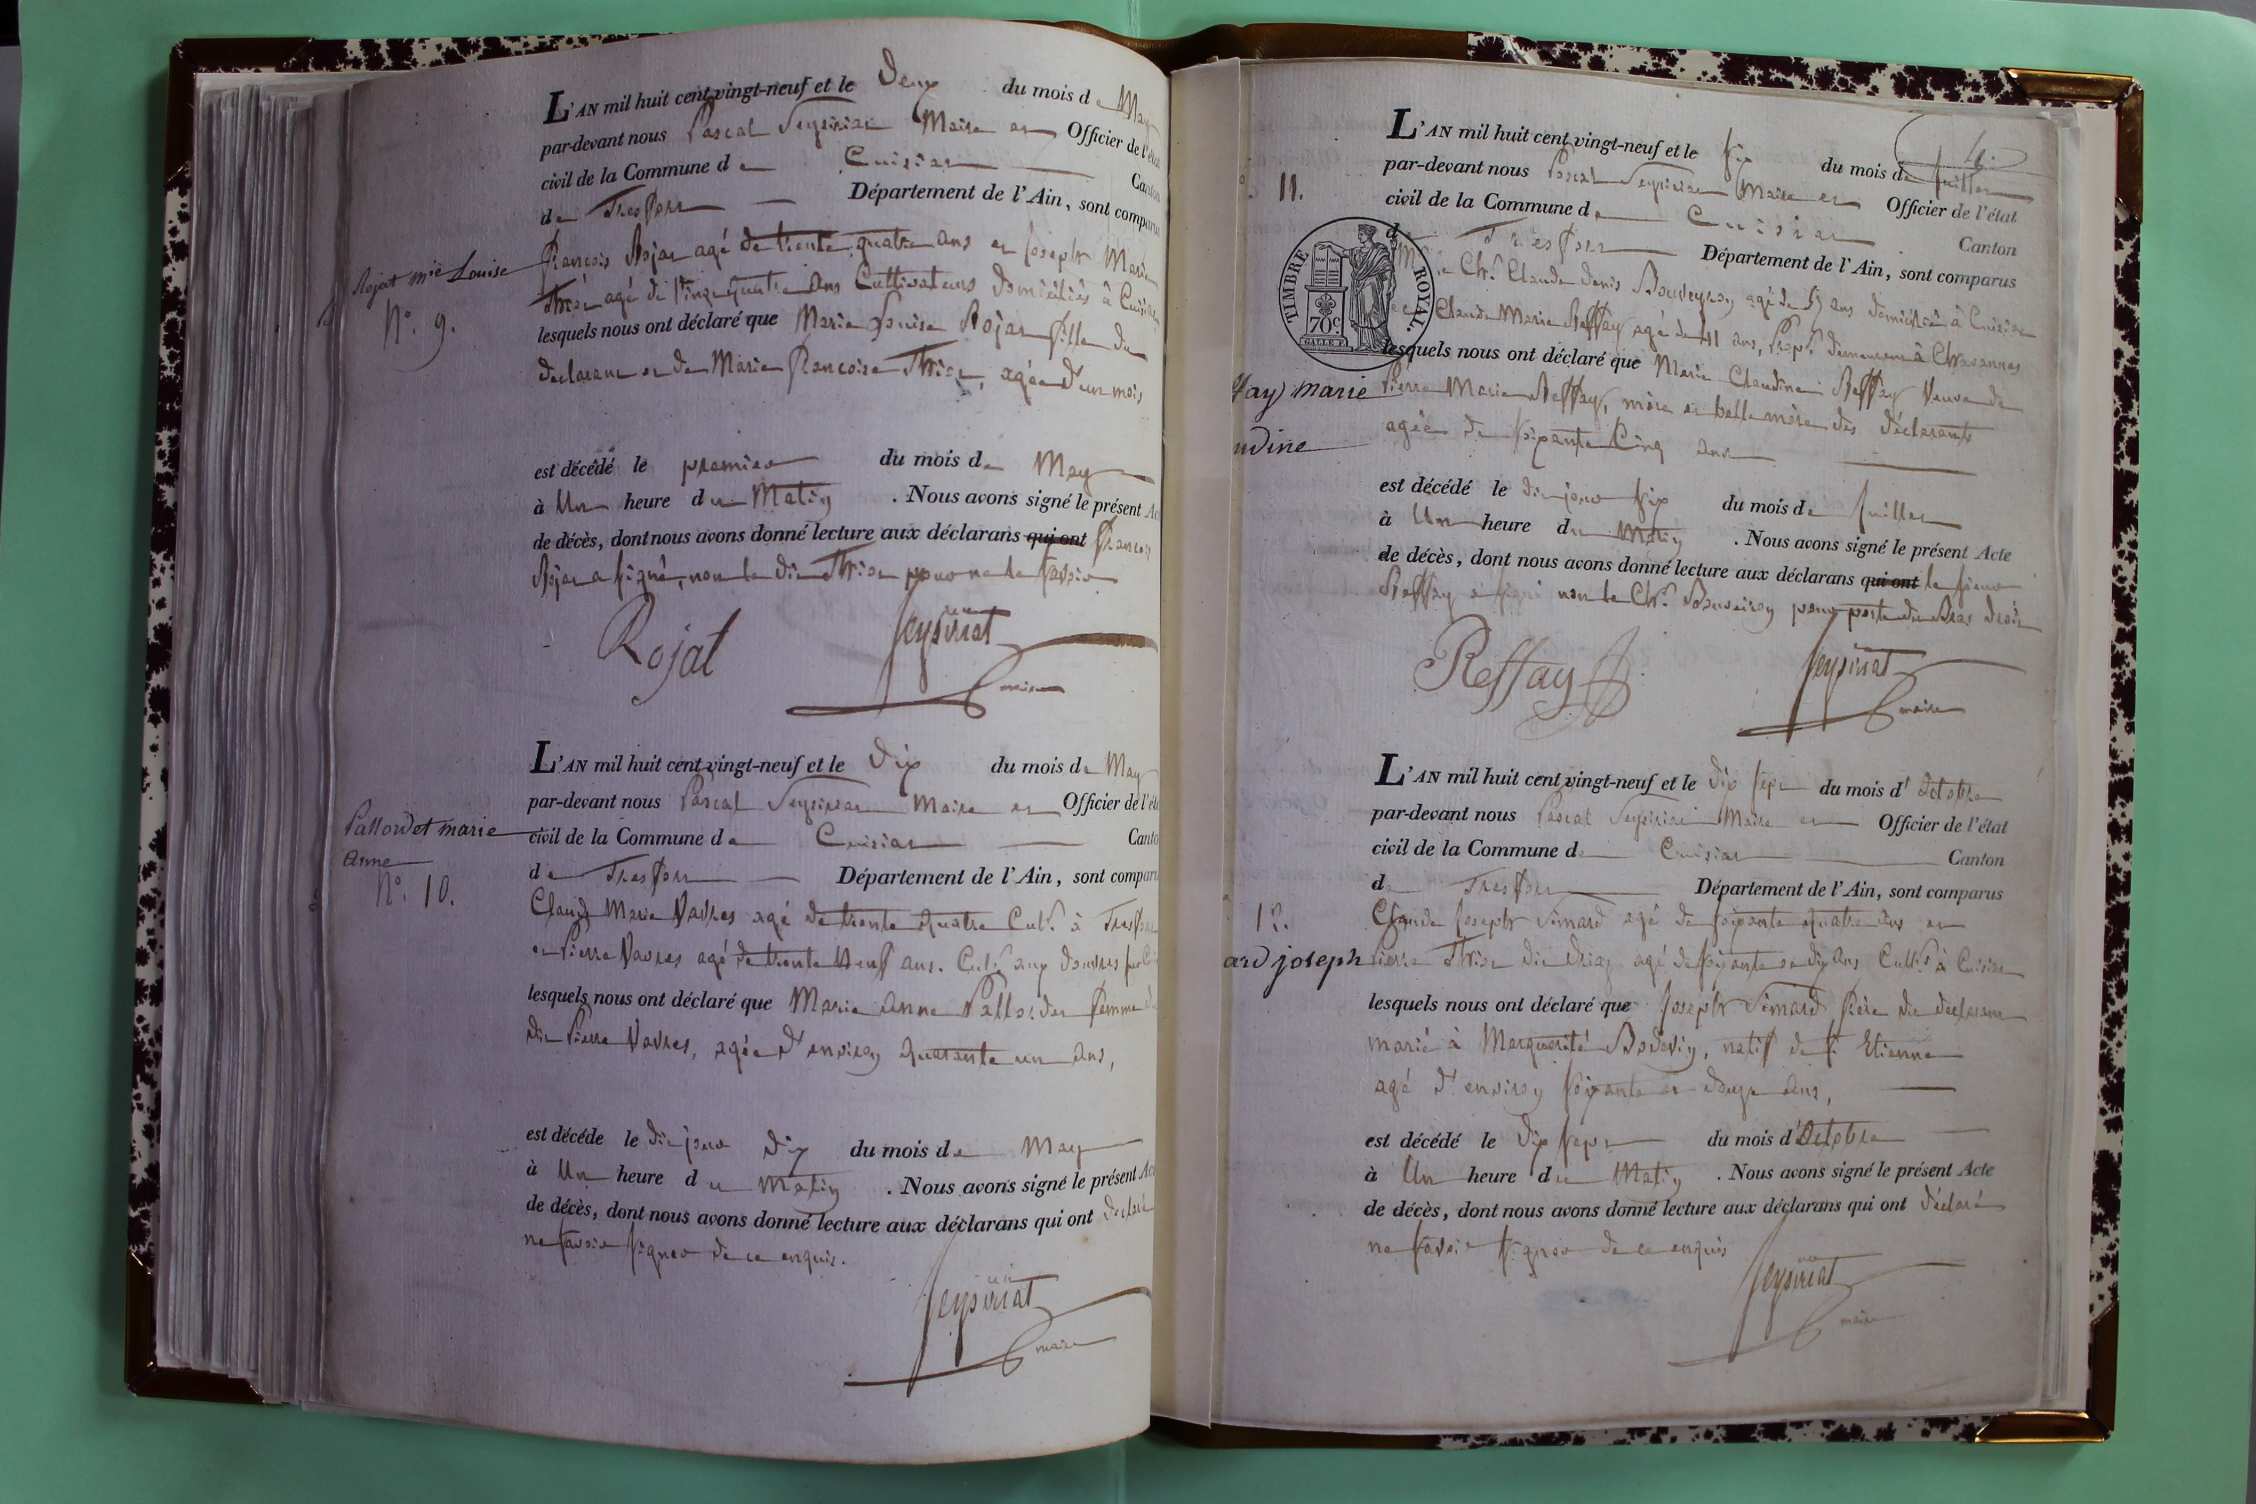 L'AN mil huit cent vingt-neuf et le Deux du mois de May
par-devant nous Pascal Seysiriat Maire et Officier de l'éta
civil de la Commune de Cuisiat Canton
de Treffort Département de l'Ain, sont comparus
François Rojat agé de trente quatre ans et Joseph Marie
agé de vingt quatre ans Cultivateurs domiciliés à Cuisiat
Rojat mie Louise
N° 9.
lesquels nous ont déclaré que Marie Louise Rojat fille du
declarant et de Marie Francoise agée d'un mois
est décédé le premier du mois de May
à Un heure du Matin . Nous avons signé le présent Ac
de décès, dont nous avons donné lecture aux déclarans qui ont Francois
Rojat a signé, non le dit pour ne le savoir
Rojat Seysiriat
maire
L'AN mil huit cent vingt-neuf et le Dix du mois de May
par-devant nous Pascal Seysiriat Maire et Officier de l'éta
civil de la Commune de Cuisiat Canto
de Treffort Département de l'Ain, sont comparu
Pallordet marie
anne
N° 10.
Claude Marie Vavres agé de trente quatre Cult. à Treffort
et Pierre Vavres agé de trente Neuf ans. Cult. aux
lesquels nous ont déclaré que Marie Anne Pallordet femme
dit Pierre Vavres, agée d'environ Quarante un ans,
est décédé le dit jour dix du mois de May
à Un heure du Matin . Nous avons signé le présent Ac
de décès, dont nous avons donné lecture aux déclarans qui ont declaré
ne savoir signer de ce enquis.
Seysiriat
maire
L'AN mil huit cent vingt-neuf et le six du mois de Juillet
11.
par-devant nous Pascal Seysiriat Maire et Officier de l'état
civil de la Commune de Cuisiat Canton
de Treffort Département de l'Ain, sont comparus
TIMBRE ROYAL.
70c.
Chr. Claude Denis agé de ans domicilié à Cuisiat
Claude Marie Reffay agé de 41 ans, Propre demeurant à Chavannes
lesquels nous ont déclaré que Marie Claudine Reffay Veuve de
ffay marie
udine
Pierre Marie Reffay, mère et belle mère des déclarants
agée de soixante Cinq ans
est décédé le dit jour six du mois de Juillet
à Un heure du Matin . Nous avons signé le présent Acte
de décès, dont nous avons donné lecture aux déclarans qui ont le sieur
Reffay a signé non le Chr. pour perte du Bras droit
Reffay Seysiriat
maire
L'AN mil huit cent vingt-neuf et le Dix sept du mois d'Octobre
par-devant nous Pascal Seysiriat Maire et Officier de l'état
civil de la Commune de Cuisiat Canton
de Treffort Département de l'Ain, sont comparus
12.
ard joseph
Claude Joseph Simard agé de soixante quatre ans et
Pierre agé de soixante et dix ans Cult. à Cuisiat
lesquels nous ont déclaré que Joseph Simard frère du declarant
marié à Marguerite natif de St Etienne
agé d'environ soixante et douze ans,
est décédé le Dix sept du mois d'Octobre
à Un heure du Matin . Nous avons signé le présent Acte
de décès, dont nous avons donné lecture aux déclarans qui ont déclaré
ne savoir signer de ce enquis
Seysiriat
maire